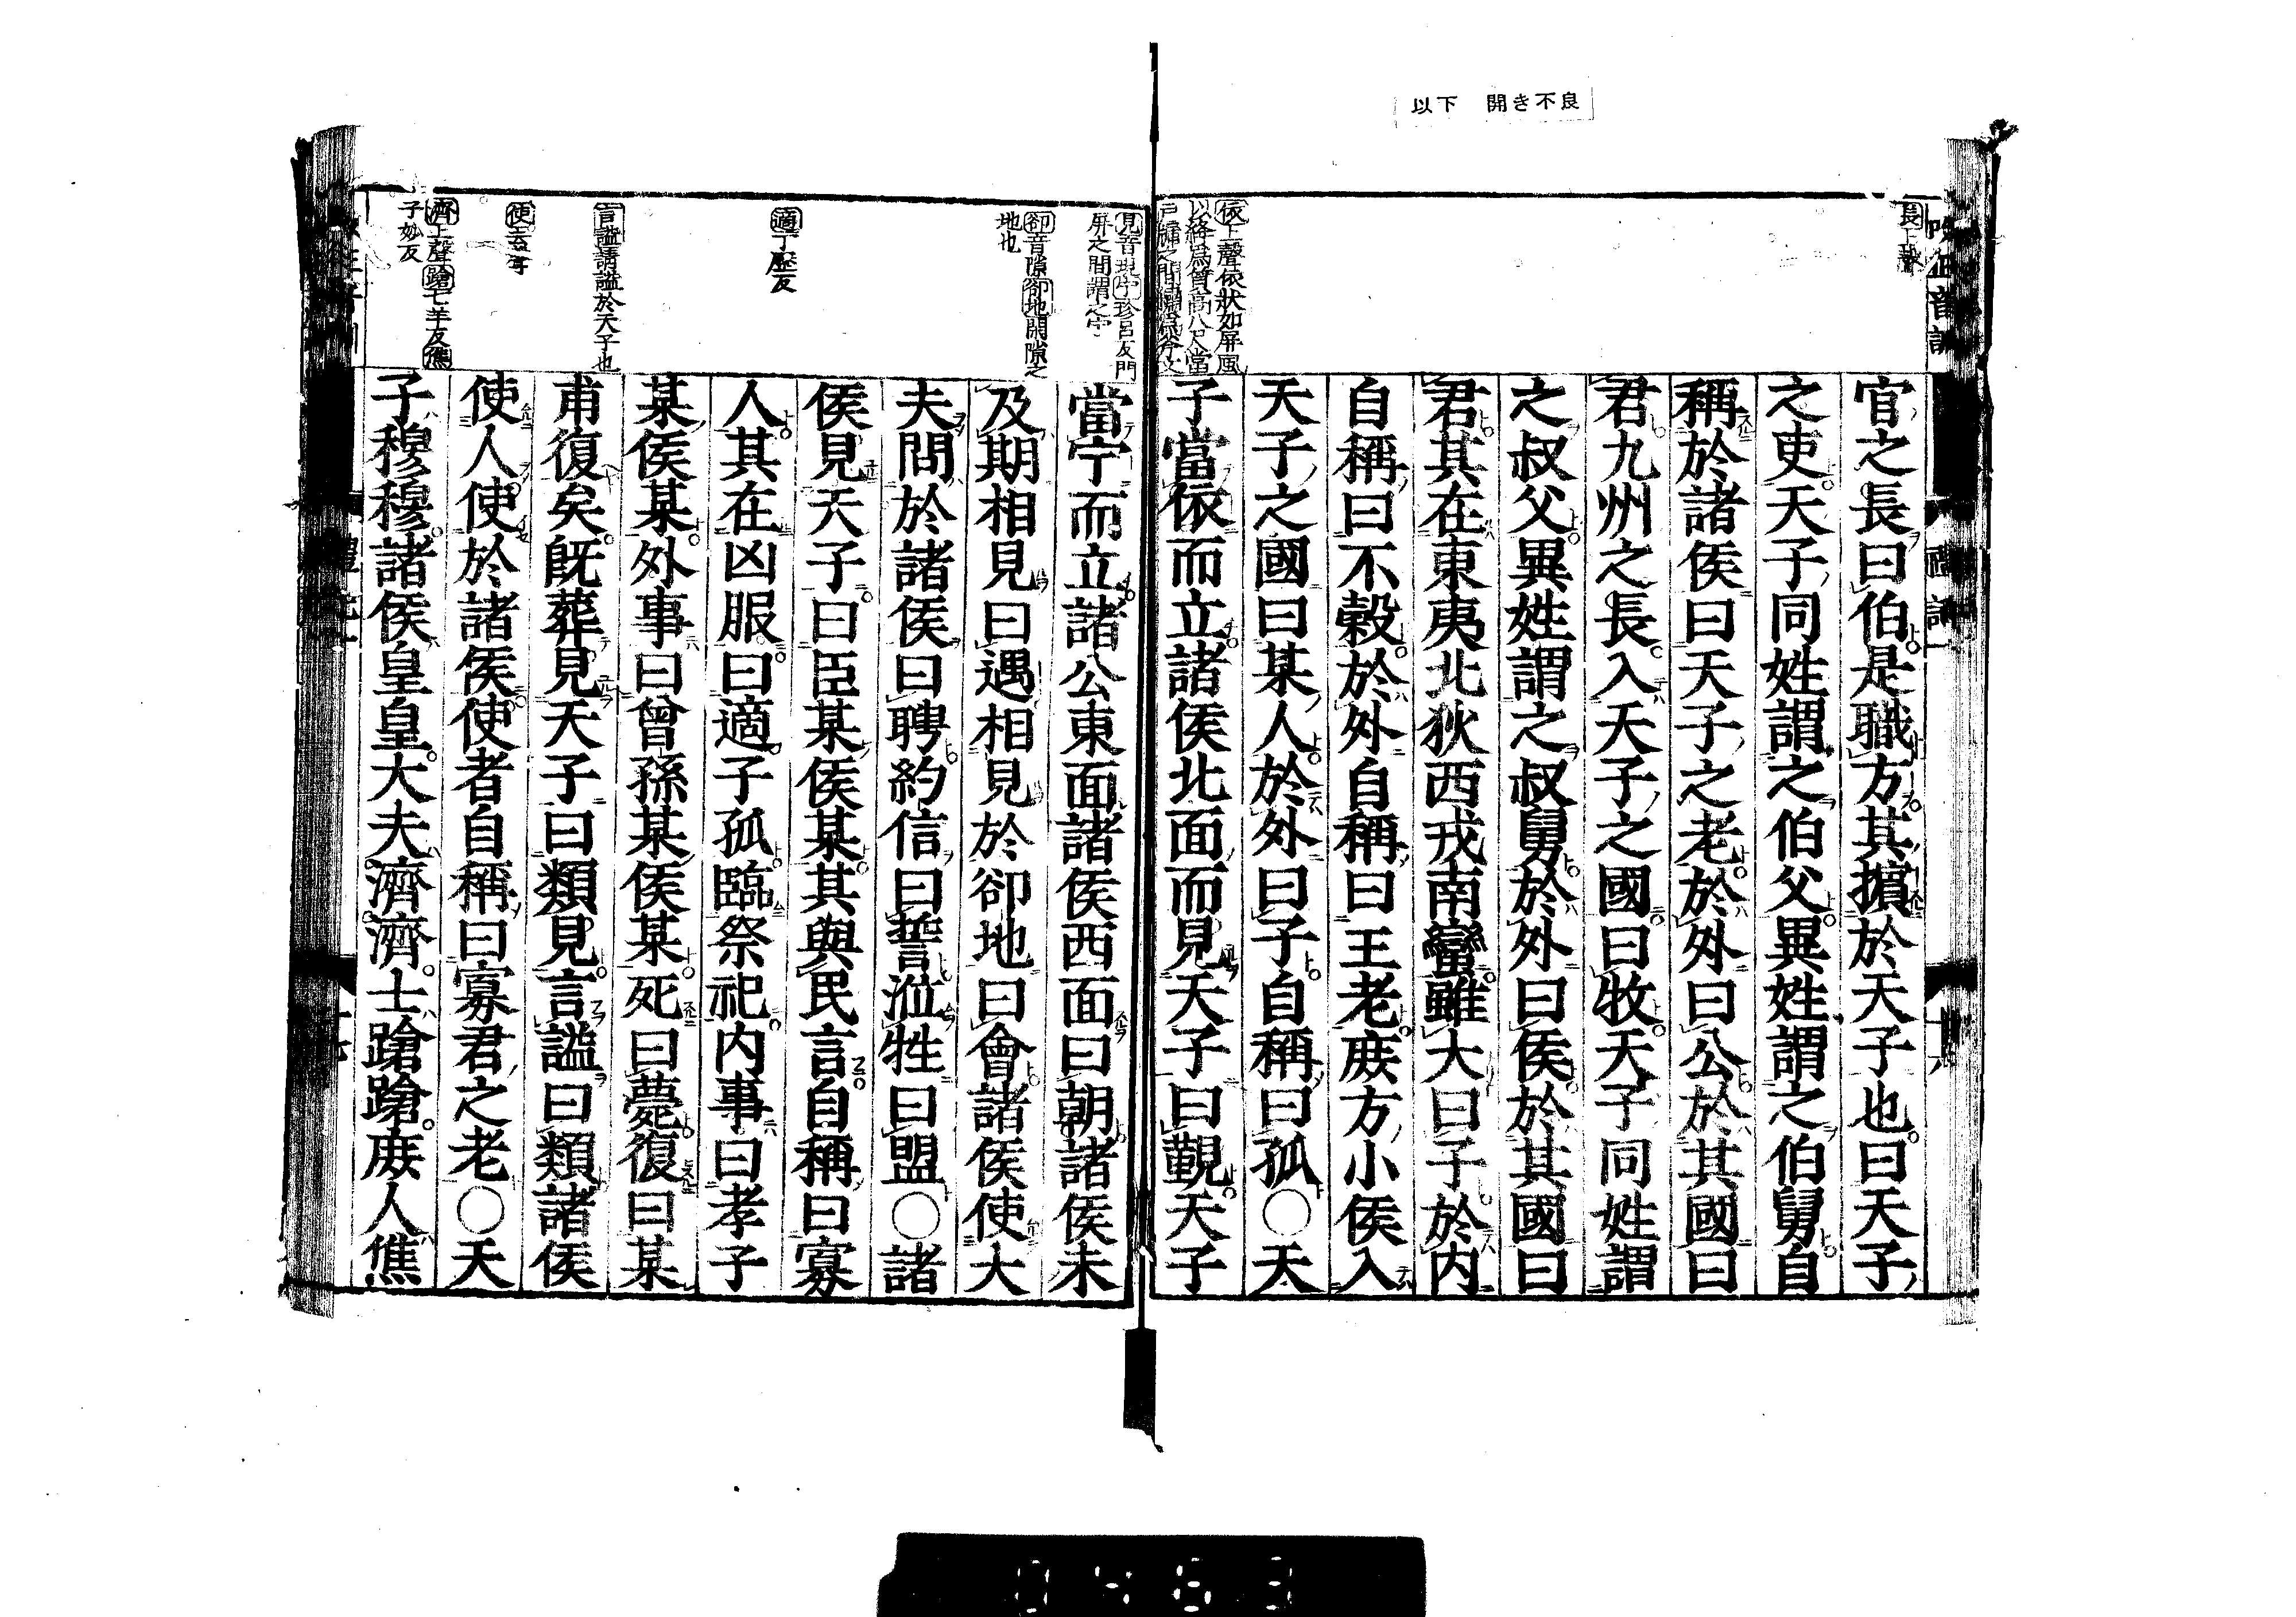 以下　開き不良
長上聲
官之長曰伯是職方其擯於天子也曰天子
之吏天子同姓謂之伯父異姓謂之伯舅自
稱於諸侯曰天子之老於外曰公於其國曰
君九州之長入天子之國曰牧天子同姓謂
之叔父異姓謂之叔舅於外曰侯於其國曰
君其在東夷北狄西戎南蠻雖大曰子於內
自稱曰不穀於外自稱曰王老庶方小侯入
天子之國曰某人於外曰子自稱曰孤○天
子當依而立諸侯北面而見天子曰覲天子
依上聲依狀如屏風
以絳爲質高八尺當
當宁而立諸公東面諸侯西面曰朝諸侯未
及期相見曰遇相見於卻地曰會諸侯使大
夫問於諸侯曰聘約信曰誓涖牲曰盟○諸
侯見天子曰臣某侯某其與民言自稱曰寡
人其在凶服曰適子孤臨祭祀內事曰孝子
某侯某外事曰曾孫某侯某死曰薨復曰某
甫復矣既葬見天子曰類見言謚曰類諸侯
使人使於諸侯使者自稱曰寡君之老○天
子穆穆諸侯皇皇大夫濟濟士蹌蹌庶人僬
見音現宁珍呂反門
屏之間謂之宁
卻音隙卻地閒隙之
地也
適丁歷反
言謚請謚於天子也
使去聲
濟上聲蹌七羊反僬
子妙反